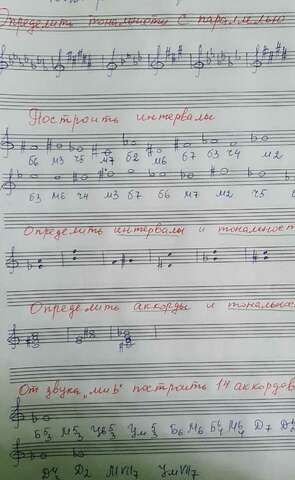 Определить тональности с параллельно
Построить интервалы
б6 м3 ч5 м7 б2 м6 б7 б3 ч4 м2
б3 м6 ч4 м3 б7 б6 м7 м2 ч5
Определить интервалы и тональност
Определить аккорды и тональнос
От звука „ми b" построить 14 аккордов
Б5/3 М5/3 Ув5/3 Ум5/3 Б6 М6 Б6/4 М6/4 D7
D4/3 D2 МVII7 УмVII7